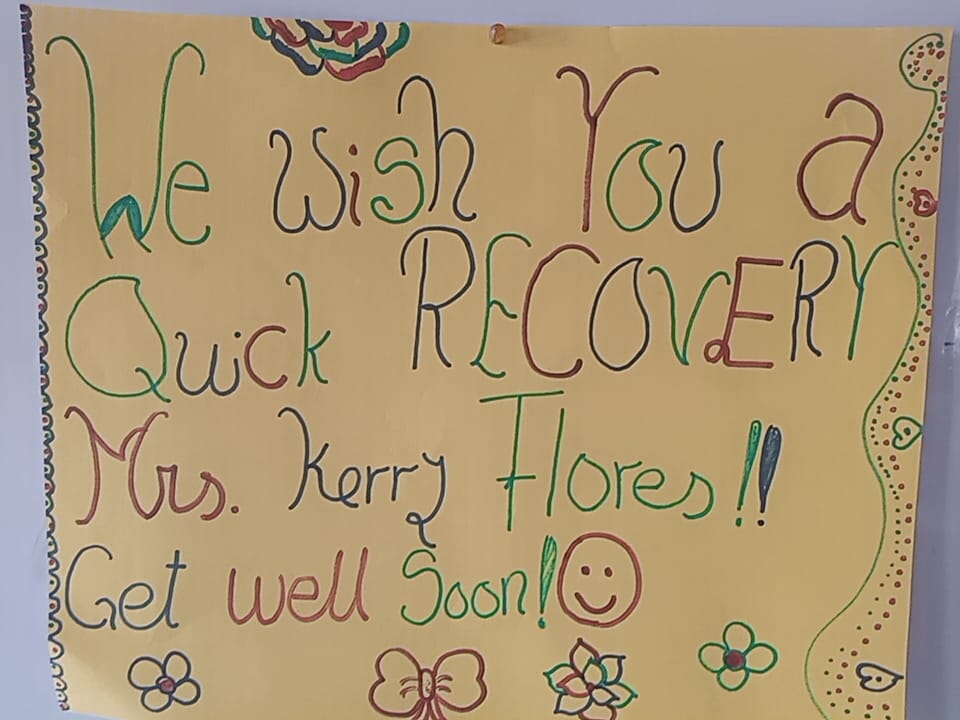 We wish You a
Quick RECOVERY
Mrs. Kerry Flores!!
Get well Soon!